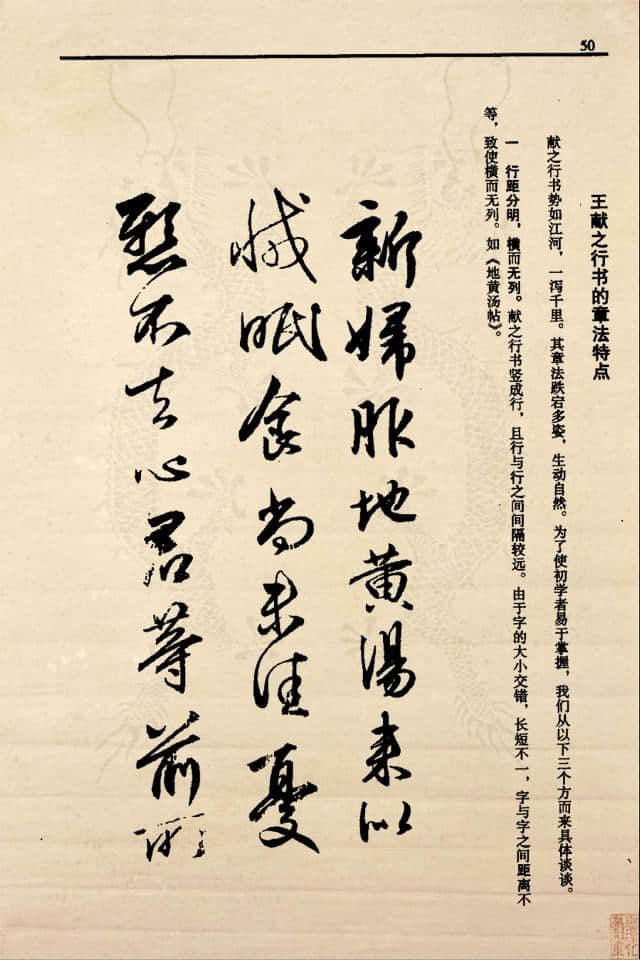 50
王献之行书的章法特点
献之行书势如江河，一泻千里。其章法跌宕多姿、生动自然。为了使初学者易于掌握，我们从以下三个方而来具体谈谈。
一 行距分明，横而无列。献之行书竖成行，且行与行之间间隔较远。由于字的大小交错，长短不一，字与字之间距离不
等，致使横而无列。如《地黄汤帖》。
新婦服地黄湯来似
減眠食尚未佳憂
懸不去心君等前所